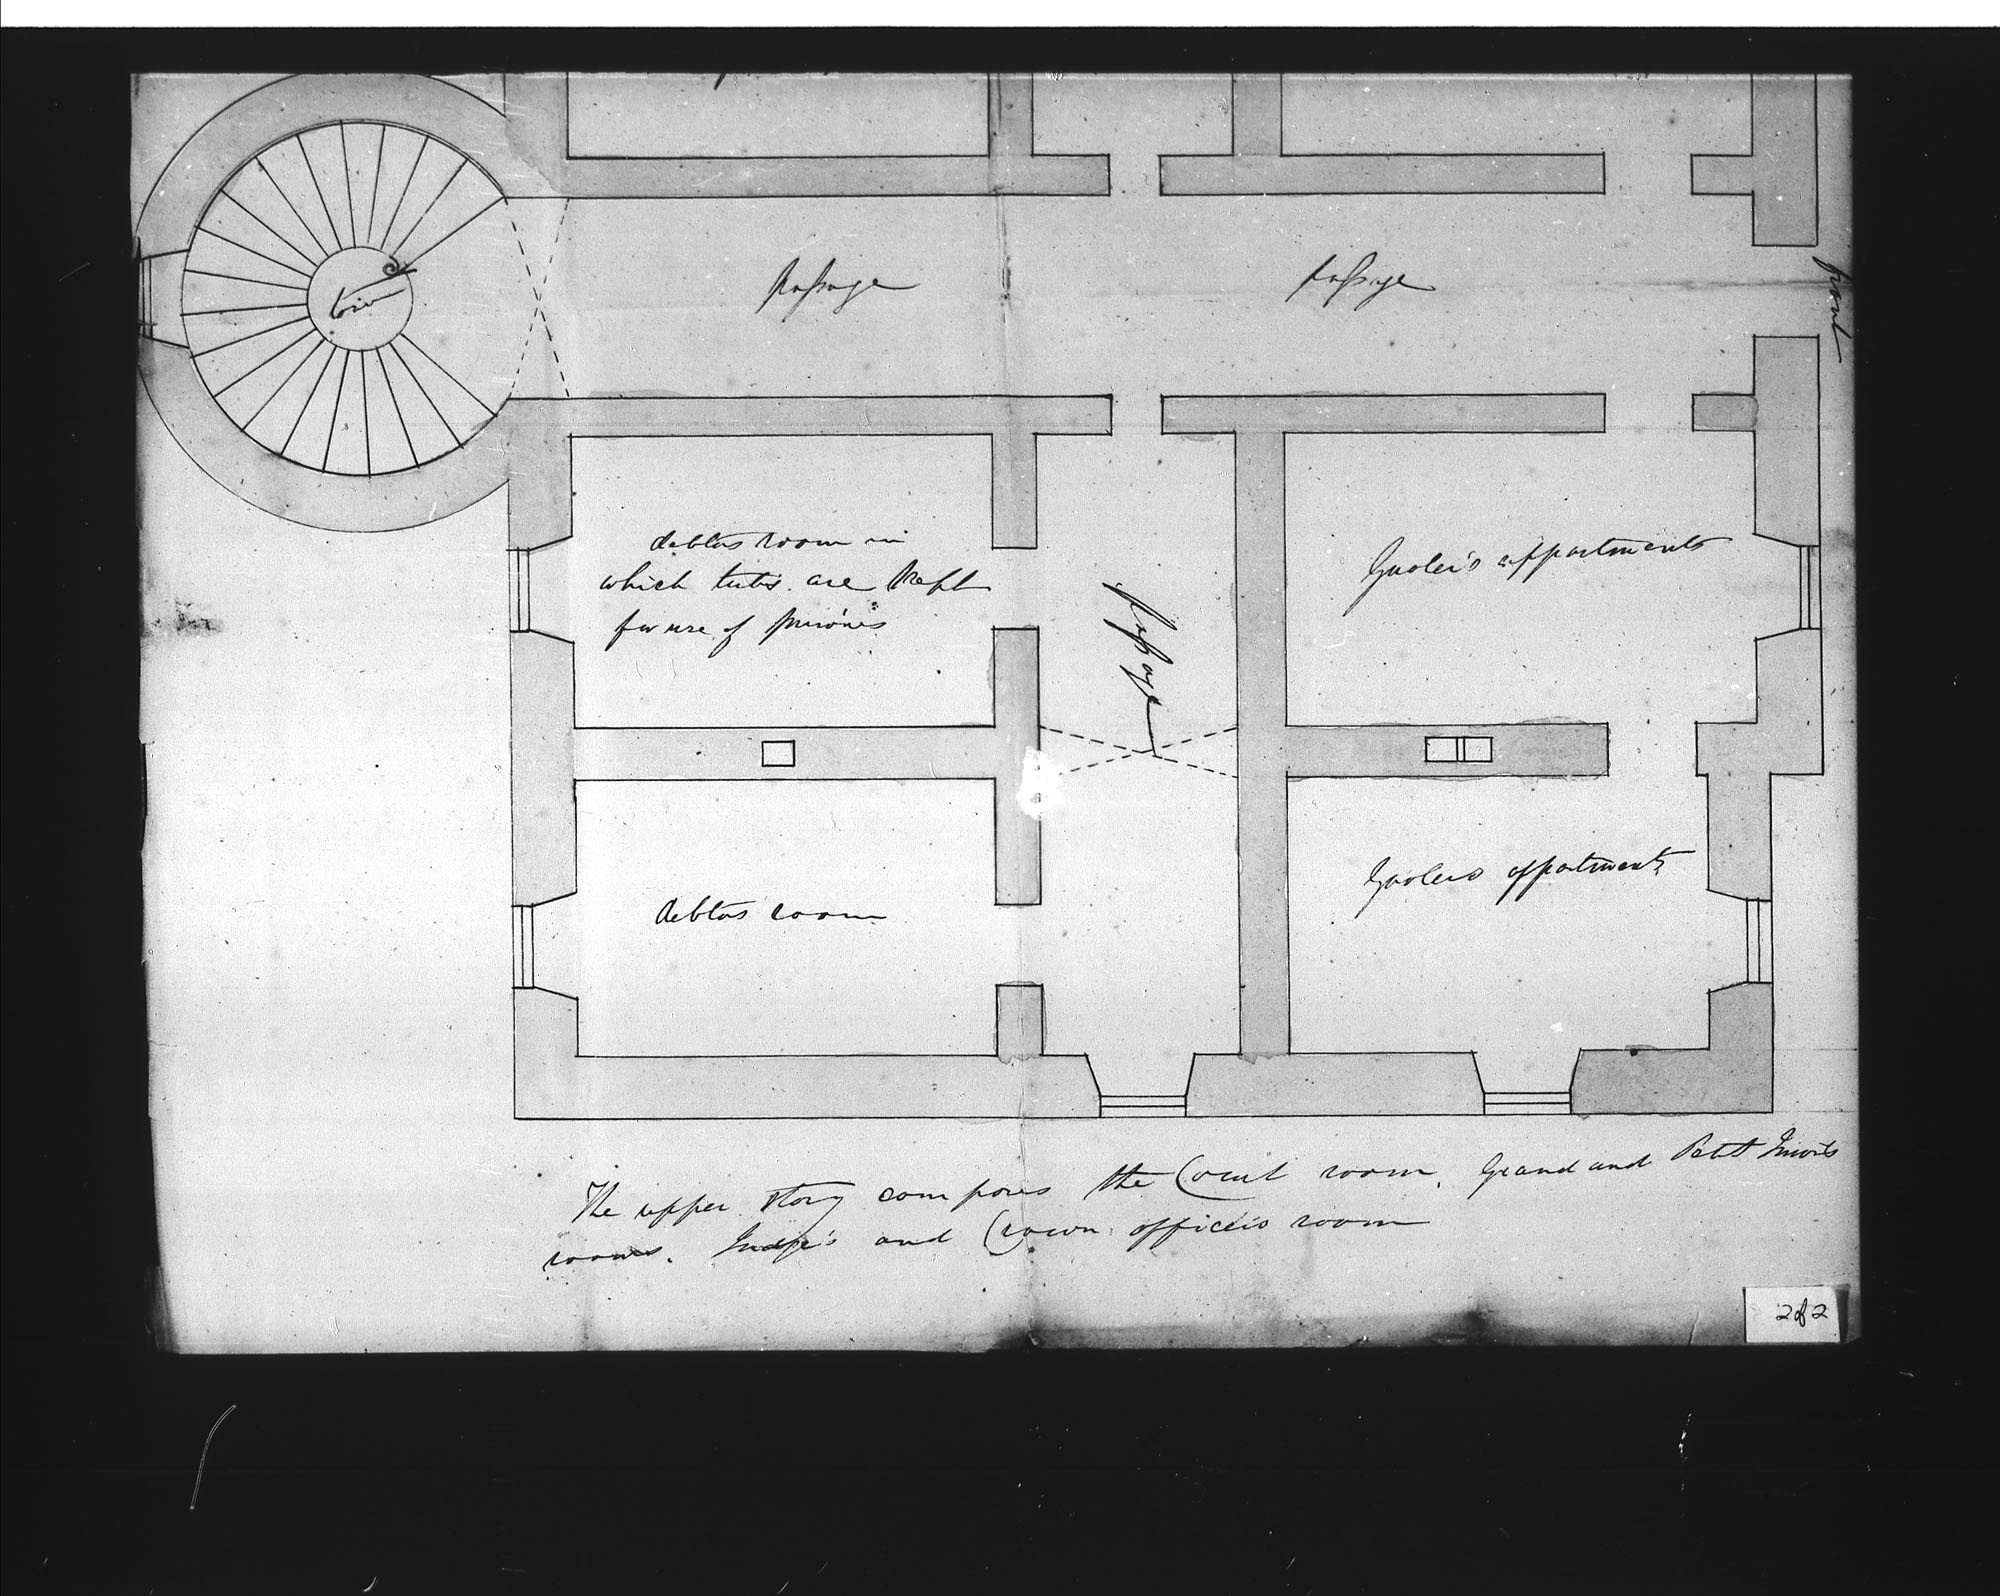 passage
passage
front
debtors room in
which tubs are kept
for use of prisoners
Gaoler's appartments
passage
debtors room
Gaolers appartments
The upper story composes the Court room, Grand and Petit Juror's
rooms. Judge's and Crown officers room
2 of 2